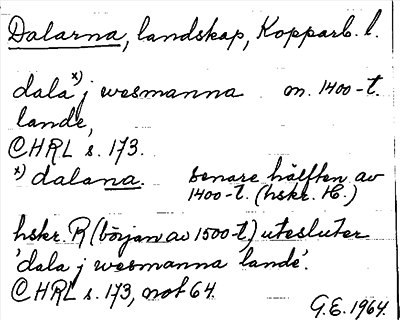 Dalarna, landskap, Kopparb. l.
dala x) j wesmanna om. 1400-t.
lande,
CHRL s. 173.
x) dalana. senare hälften av
1400-t. (hskr. H.)
hskr. R (början av 1500-t.) utesluter
'dala j wesmanna lande'.
CHRL s. 173, not 64.
G.E. 1964.